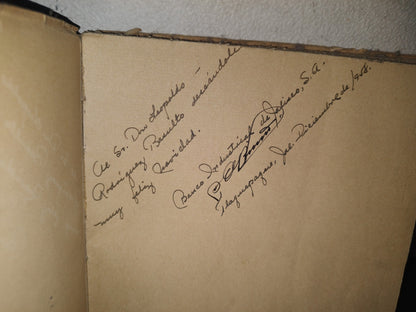 Al Sr. Don Leopoldo
Rodríguez Basulto deseándole
muy feliz Navidad.
Banco Industrial de Jalisco, S.A.
Tlaquepaque, Jal. Diciembre de 1958.